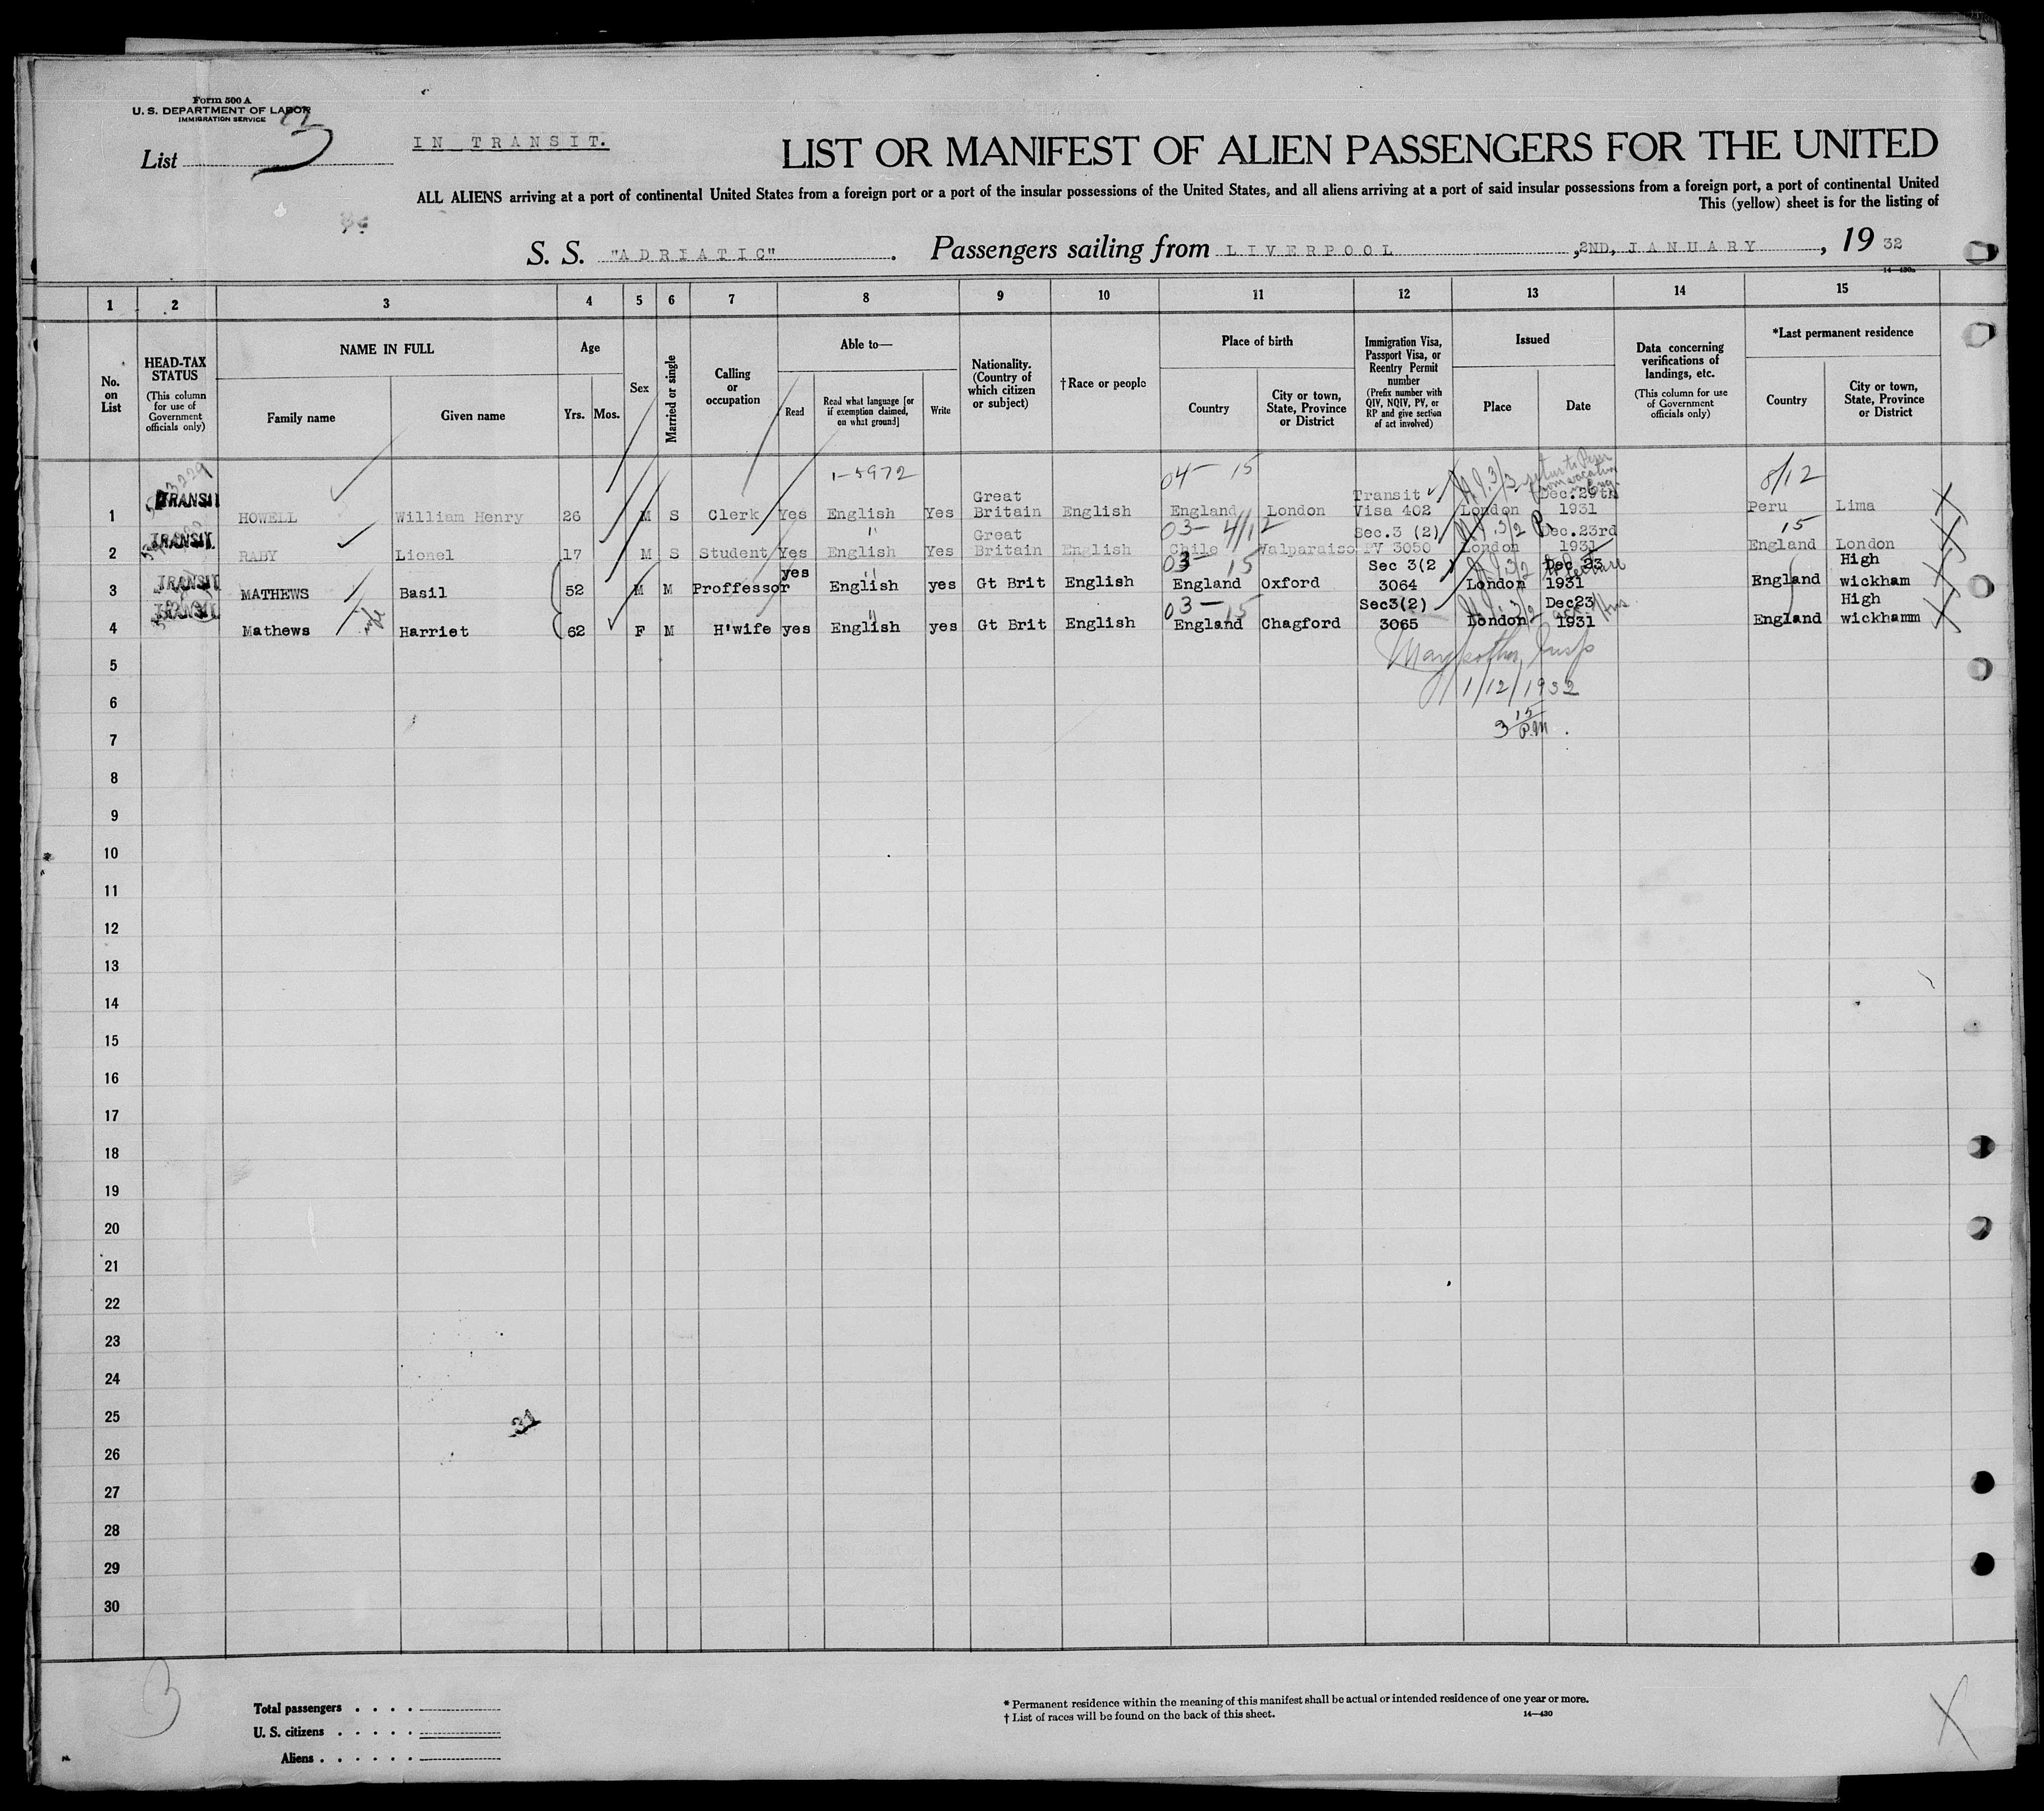 Form 500 A
U. S. DEPARTMENT OF LABOR
IMMIGRATION SERVICE
List 3
IN TRANSIT.
LIST OR MANIFEST OF ALIEN PASSENGERS FOR THE UNITED
ALL ALIENS arriving at a port of continental United States from a foreign port or a port of the insular possessions of the United States, and all aliens arriving at a port of said insular possessions from a foreign port, a port of continental United
This (yellow) sheet is for the listing of
S. S. "ADRIATIC". Passengers sailing from LIVERPOOL, 2ND, JANUARY, 19 32
14—430a
1 2 3 4 5 6 7 8 9 10 11 12 13 14 15
No. on List
HEAD-TAX STATUS
(This column for use of Government officials only)
NAME IN FULL
Family name
Given name
Age
Yrs. Mos.
Sex
Married or single
Calling or occupation
Able to—
Read
Read what language [or if exemption claimed, on what ground]
Write
Nationality. (Country of which citizen or subject)
† Race or people
Place of birth
Country
City or town, State, Province or District
Immigration Visa, Passport Visa, or Reentry Permit number
(Prefix number with QIV, NQIV, PV, or RP and give section of act involved)
Issued
Place
Date
Data concerning verifications of landings, etc.
(This column for use of Government officials only)
*Last permanent residence
Country
City or town, State, Province or District
1-5972 04- 15 8/12
TRANSIT Great Transit Dec.29th
1 HOWELL William Henry 26 M S Clerk Yes English Yes Britain English England London Visa 402 London 1931 Peru Lima
03- 4/12 15
TRANSIT " Great Sec.3 (2) Dec.23rd
2 RABY Lionel 17 M S Student Yes English Yes Britain English Chile Valparaiso PV 3050 London 1931 England London
03- 15
TRANSIT yes " Sec 3(2 Dec 23 High
3 MATHEWS Basil 52 M M Proffessor English yes Gt Brit English England Oxford 3064 London 1931 England wickham
03- 15
TRANSIT wife " Sec3(2) Dec23 High
4 Mathews Harriet 62 F M H'wife yes English yes Gt Brit English England Chagford 3065 London 1931 England wickhamm
5
6 1/12/1932
7 3 15 P.M.
8
9
10
11
12
13
14
15
16
17
18
19
20
21
22
23
24
25
26
27
28
29
30
3
Total passengers . . . .
U. S. citizens . . . . .
Aliens . . . . . .
* Permanent residence within the meaning of this manifest shall be actual or intended residence of one year or more.
† List of races will be found on the back of this sheet.
14—430
X